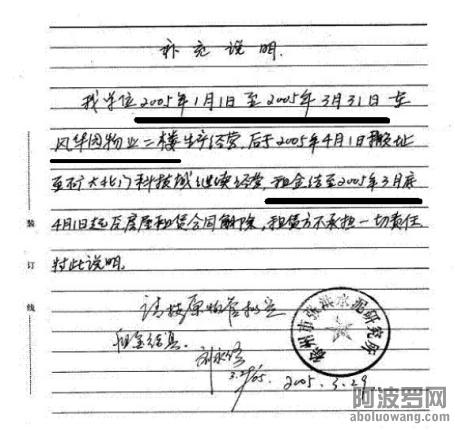 补充说明.
我单位2005年1月1日至2005年3月31日在
风华园物业二楼生产经营,后于2005年4月1日搬址
至矿大北门科技城继续经营,租金结至2005年3月底
4月1日起房屋租赁合同解除,租赁方不承担一切责任.
特此说明.
请按原
租金结算.
2005.3.29
装
订
线
徐州市 水泥研究所
阿波罗网
aboluowang.com